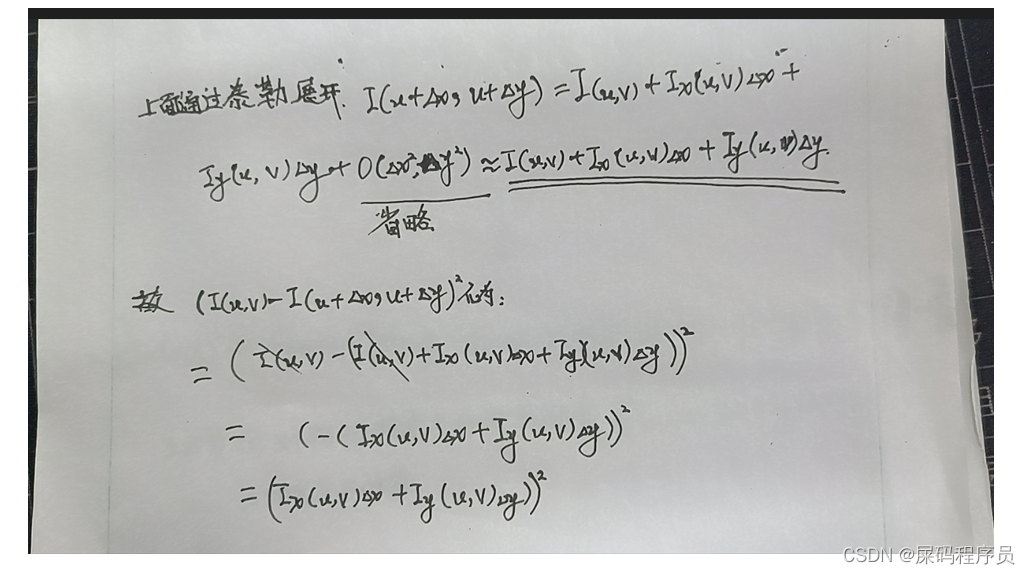 上面通过泰勒展开. I(u+Δx, u+Δy) = I(u,v) + Ix(u,v)Δx +
Iy(u,v)Δy + O(Δx²,Δy²) ≈ I(u,v) + Ix(u,v)Δx + Iy(u,v)Δy.
省略
故 (I(u,v) - I(u+Δx, u+Δy)²化为:
= (I(u,v) - (I(u,v) + Ix(u,v)Δx + Iy(u,v)Δy))²
= (-(Ix(u,v)Δx + Iy(u,v)Δy))²
= (Ix(u,v)Δx + Iy(u,v)Δy))²
CSDN @屎码程序员